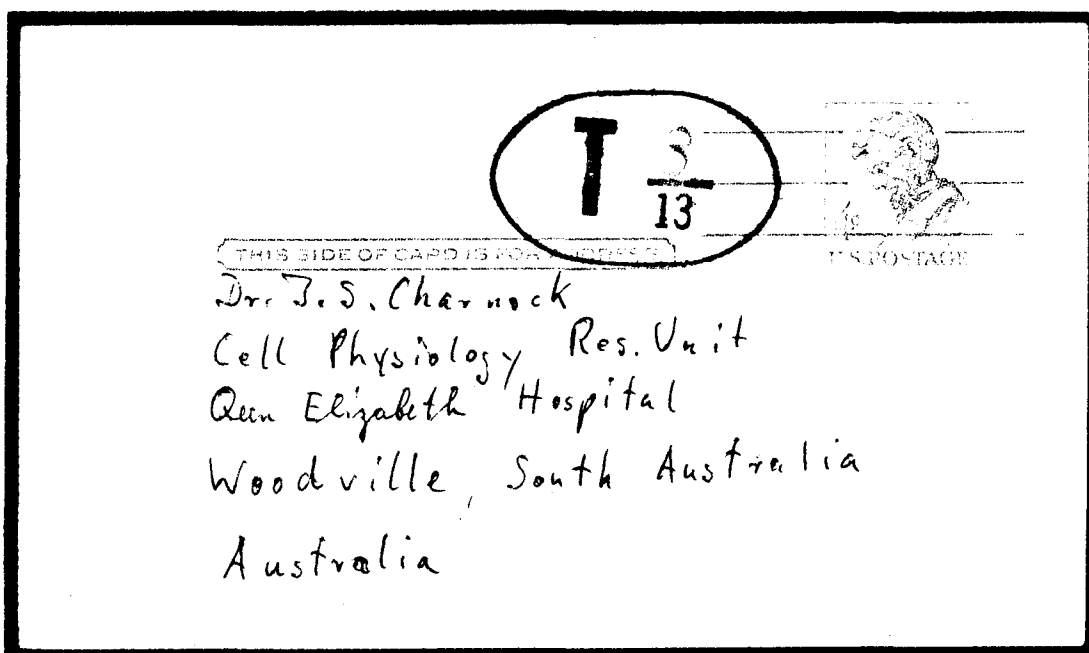 T 3
13
U.S. POSTAGE
THIS SIDE OF CARD IS FOR ADDRESS
Dr. J. S. Charnock
Cell Physiology Res. Unit
Queen Elizabeth Hospital
Woodville, South Australia
Australia